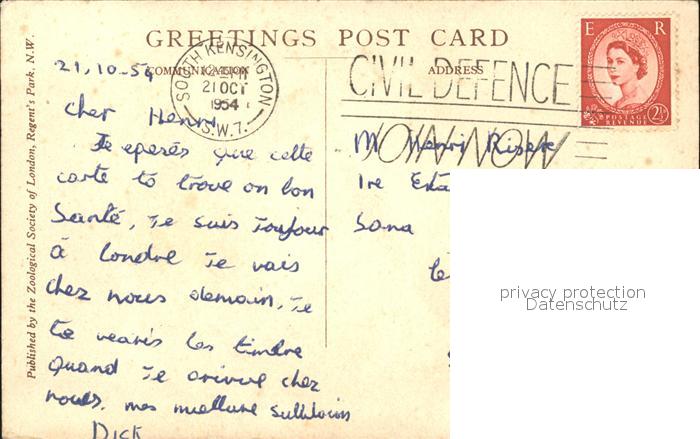 GREETINGS POST CARD
COMMUNICATION
ADDRESS
Published by the Zoological Society of London, Regent's Park, N.W.
SOUTH KENSINGTON
21 OCT
1954
S.W.7.
CIVIL DEFENCE
JOIN NOW
E R
POSTAGE
REVENUE
2½
21.10-54
Cher Henri
Je eperes que cette
carte to trove on bon
Santé, Je suis Toujour
à Londre Je vais
chez nous demain, Je
te les timbre
quand Je arivve chez
nous, mes
Dick
M Henri
Ire
Sana
privacy protection
Datenschutz